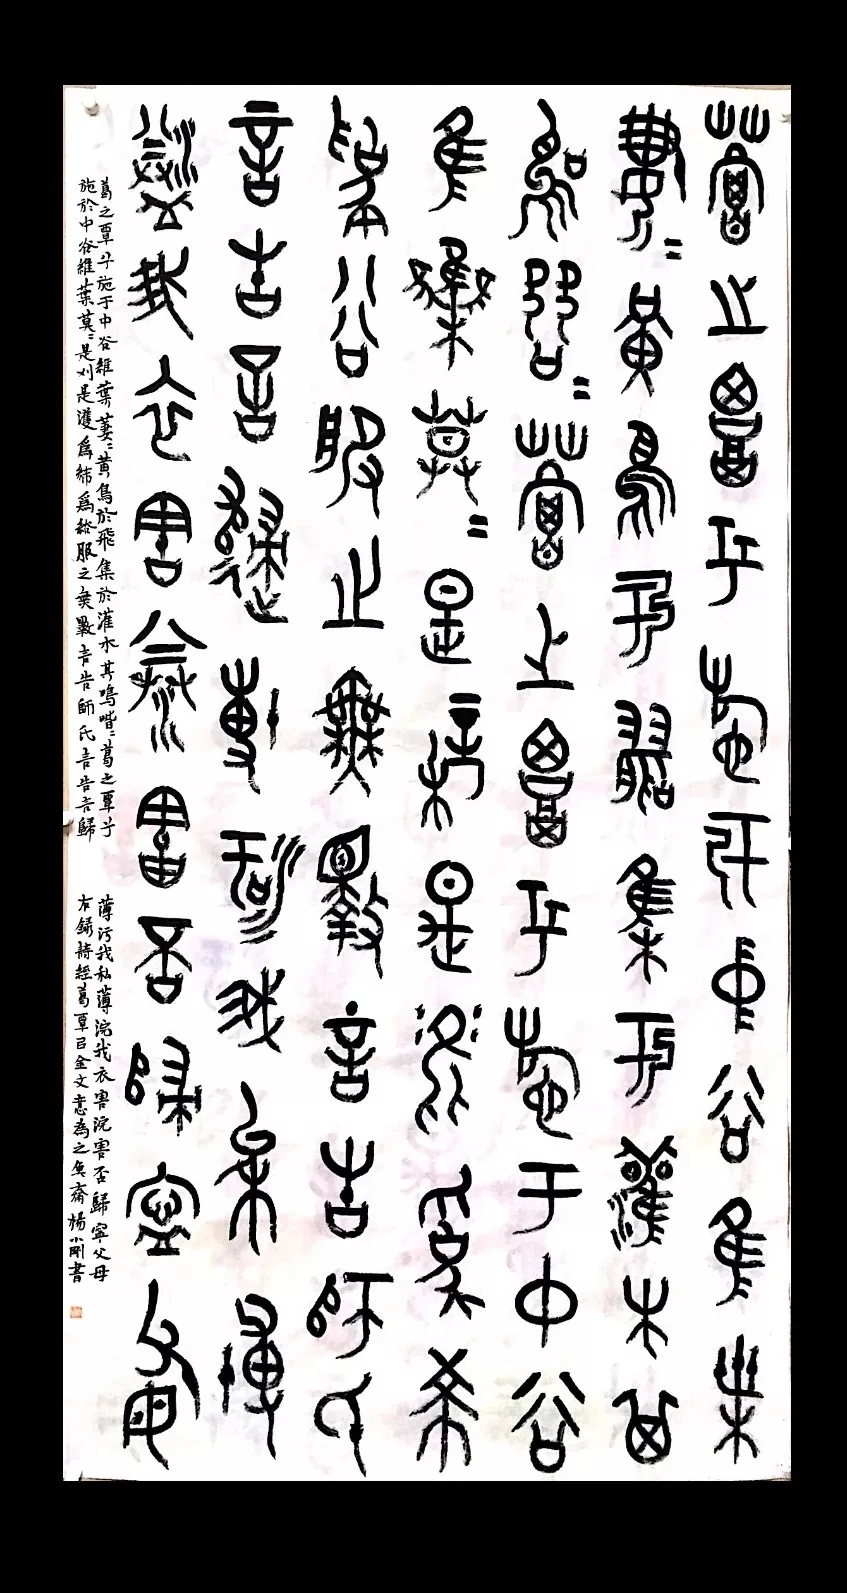 葛之覃兮施于中谷隹葉
萋=黃鳥于飛集于灌木其
鳴喈=葛之覃兮施于中谷
隹葉莫=是刈是濩為絺
為谷服之無斁言告師氏
言告言歸薄污我私薄
浣我衣害浣害否歸寧父母
葛之覃兮施于中谷維葉萋=黃鳥於飛集於灌木其鳴喈=葛之覃兮
施於中谷維葉莫=是刈是濩為絺為綌服之無斁言告師氏言告言歸
薄污我私薄浣我衣害浣害否歸寧父母
右錄詩經葛覃以金文意為之魚齋楊小剛書